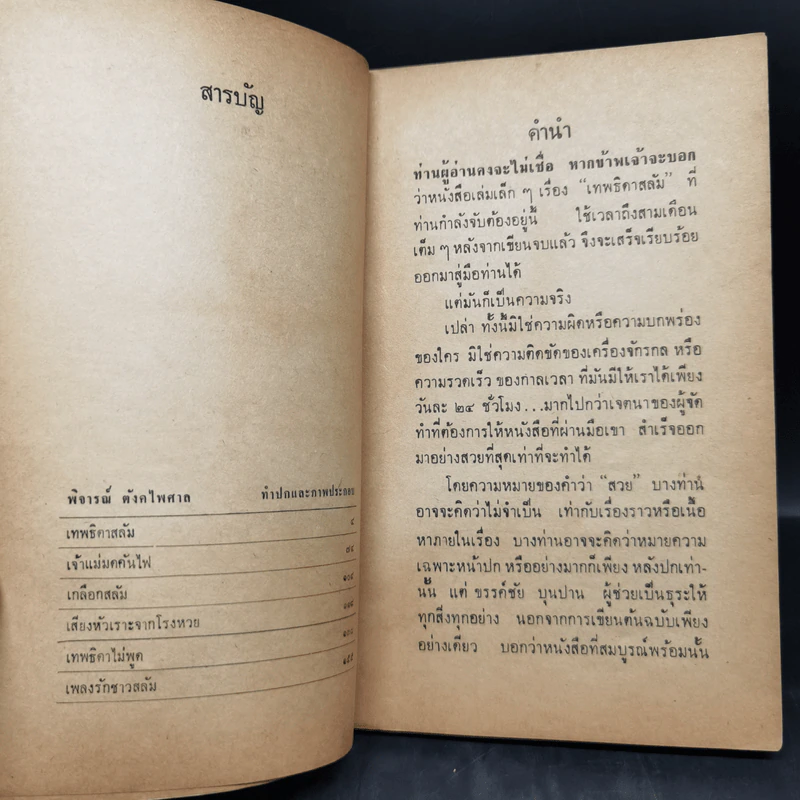 สารบัญ
พิจารณ์ ตังคไพศาล ทำปกและภาพประกอบ
เทพธิดาสลัม
เจ้าแม่มดคันไฟ
เกลือกสลัม
เสียงหัวเราะจากโรงหวย
เทพธิดาไม่พูด
เพลงรักชาวสลัม
คำนำ
ท่านผู้อ่านคงจะไม่เชื่อ หากข้าพเจ้าจะบอก
ว่าหนังสือเล่มเล็ก ๆ เรื่อง “เทพธิดาสลัม” ที่
ท่านกำลังจับต้องอยู่นี้ ใช้เวลาถึงสามเดือน
เต็ม ๆ หลังจากเขียนจบแล้ว จึงจะเสร็จเรียบร้อย
ออกมาสู่มือท่านได้
แต่มันก็เป็นความจริง
เปล่า ทั้งนี้มิใช่ความผิดหรือความบกพร่อง
ของใคร มิใช่ความติดขัดของเครื่องจักรกล หรือ
ความรวดเร็ว ของกาลเวลา ที่มันมีให้เราได้เพียง
วันละ ๒๔ ชั่วโมง...มากไปกว่าเจตนาของผู้จัด
ทำที่ต้องการให้หนังสือที่ผ่านมือเขา สำเร็จออก
มาอย่างสวยที่สุดเท่าที่จะทำได้
โดยความหมายของคำว่า “สวย” บางท่าน
อาจจะคิดว่าไม่จำเป็น เท่ากับเรื่องราวหรือเนื้อ
หาภายในเรื่อง บางท่านอาจจะคิดว่าหมายความ
เฉพาะหน้าปก หรืออย่างมากก็เพียง หลังปกเท่า-
นั้น แต่ ขรรค์ชัย บุนปาน ผู้ช่วยเป็นธุระให้
ทุกสิ่งทุกอย่าง นอกจากการเขียนต้นฉบับเพียง
อย่างเดียว บอกว่าหนังสือที่สมบูรณ์พร้อมนั้น